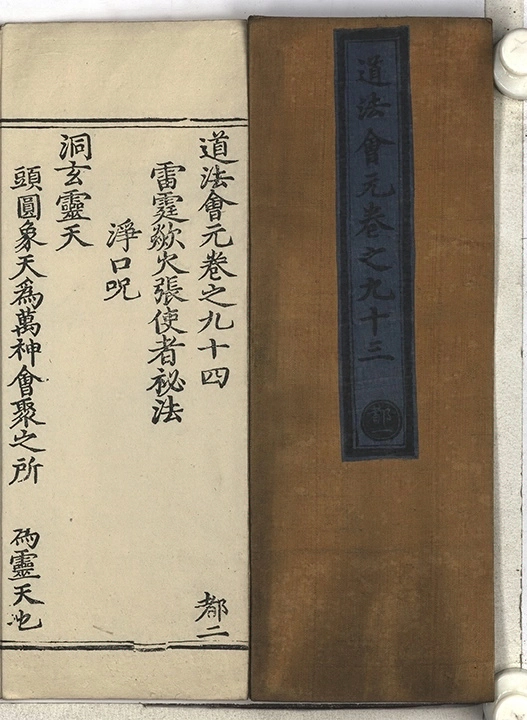 道法會元卷之九十三
都一
道法會元卷之九十四
都二
雷霆欻火張使者祕法
淨口呪
洞玄靈天
頭圓象天爲萬神會聚之所 為靈天也